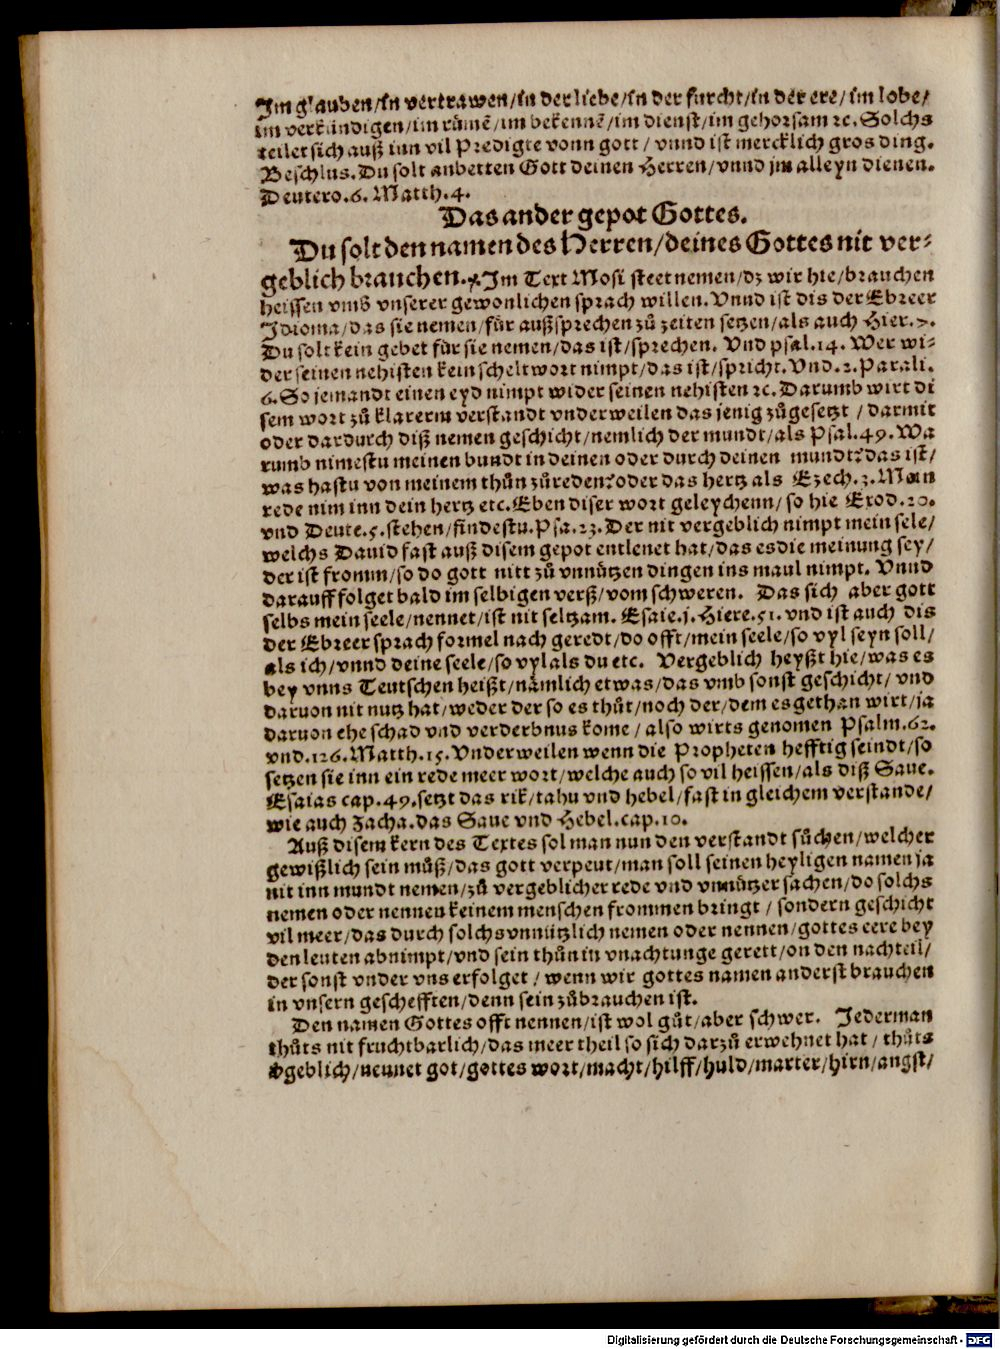 Im glauben/in vertrawen/in der liebe/in der furcht/in der ere/im lobe/
im verkündigen/im rümē/im bekennē/im dienst/im gehorsam ꝛc. Solchs
teilet sich auß inn vil Predigte vonn gott/vnnd ist mercklich gros ding.
Beschlus. Du solt anbetten Gott deinen Herren/vnnd jm alleyn dienen.
Deutero.6. Matth.4.
Das ander gepot Gottes.
Du solt den namen des Herren/deines Gottes nit ver⸗
geblich brauchen. Im Text Mosi steet nemen/dz wir hie/brauchen
heissen vmb vnserer gewonlichen sprach willen. Vnnd ist dis der Ebreer
Idioma/das sie nemen/für außsprechen zů zeiten setzen/als auch Hier.7.
Du solt kein gebet für sie nemen/das ist/sprechen. Vnd psal.14. Wer wi⸗
der seinen nehisten kein scheltwort nimpt/das ist/spricht. Vnd.2.Parali.
6. So jemandt einen eyd nimpt wider seinen nehisten ꝛc. Darumb wirt di
sem wort zů klarerm verstandt vnderweilen das jenig zůgesetzt/darmit
oder dardurch diß nemen geschicht/nemlich der mundt/als Psal.49. Wa
rumb nimestu meinen bundt in deinen oder durch deinen mundt? das ist/
was hastu von meinem thůn zůreden? oder das hertz als Ezech.3. Mein
rede nim inn dein hertz etc. Eben diser wort geleychenn/so hie Exod.20.
vnd Deute.5.stehen/findestu. Psa.23. Der nit vergeblich nimpt mein sele/
welchs Dauid fast auß disem gepot entlenet hat/das es die meinung sey/
der ist fromm/so do gott nitt zů vnnützen dingen ins maul nimpt. Vnnd
darauff folget bald im selbigen verß/vom schweren. Das sich aber gott
selbs mein seele/nennet/ist nit seltzam. Esaie.j. Hiere.51. vnd ist auch dis
der Ebreer sprach formel nach geredt/do offt/mein seele/so vyl seyn soll/
als ich/vnnd deine seele/so vyl als du etc. Vergeblich heyßt hie/was es
bey vnns Teutschen heißt/nämlich etwas/das vmb sonst geschicht/vnd
daruon nit nutz hat/weder der so es thůt/noch der/dem es gethan wirt/ja
daruon ehe schad vnd verderbnus kome/also wirts genomen Psalm.62.
vnd.126. Matth.15. Vnderweilen wenn die Propheten hefftig seindt/so
setzen sie inn ein rede meer wort/welche auch so vil heissen/als diß Saue.
Esaias cap.49.setzt das rik/tahu vnd hebel/fast in gleichem verstande/
wie auch Zacha. das Saue vnd Hebel.cap.10.
Auß disem kern des Textes sol man nun den verstandt sůchen/welcher
gewißlich sein můß/das gott verpeut/man soll seinen heyligen namen ja
nit inn mundt nemen/zů vergeblicher rede vnd vnnützer sachen/do solchs
nemen oder nennen keinem menschen frommen bringt/sondern geschicht
vil meer/das durch solchs vnnützlich nemen oder nennen/gottes eere bey
den leuten abnimpt/vnd sein thůn in vnachtunge gerett/on den nachteil/
der sonst vnder vns erfolget/wenn wir gottes namen anderst brauchen
in vnsern geschefften/denn sein zůbrauchen ist.
Den namen Gottes offt nennen/ist wol gůt/aber schwer. Jederman
thůts nit fruchtbarlich/das meer theil so sich darzů erwehnet hat/thůts
vgeblich/nennet got/gottes wort/macht/hilff/huld/marter/hirn/angst/
Digitalisierung gefördert durch die Deutsche Forschungsgemeinschaft - DFG